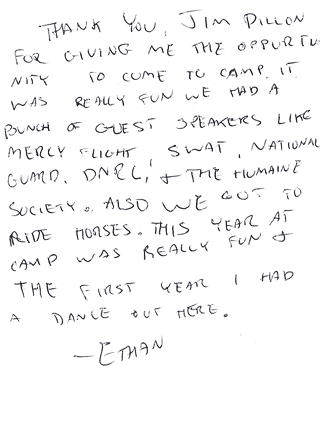 THANK YOU, JIM DILLON
FOR GIVING ME THE OPPORTU-
NITY TO COME TO CAMP. IT
WAS REALLY FUN WE HAD A
BUNCH OF GUEST SPEAKERS LIKE
MERCY FLIGHT, SWAT, NATIONAL
GUARD, DNRC, + THE HUMAINE
SOCIETY. ALSO WE GOT TO
RIDE HORSES. THIS YEAR AT
CAMP WAS REALLY FUN +
THE FIRST YEAR I HAD
A DANCE OUT HERE.
—ETHAN